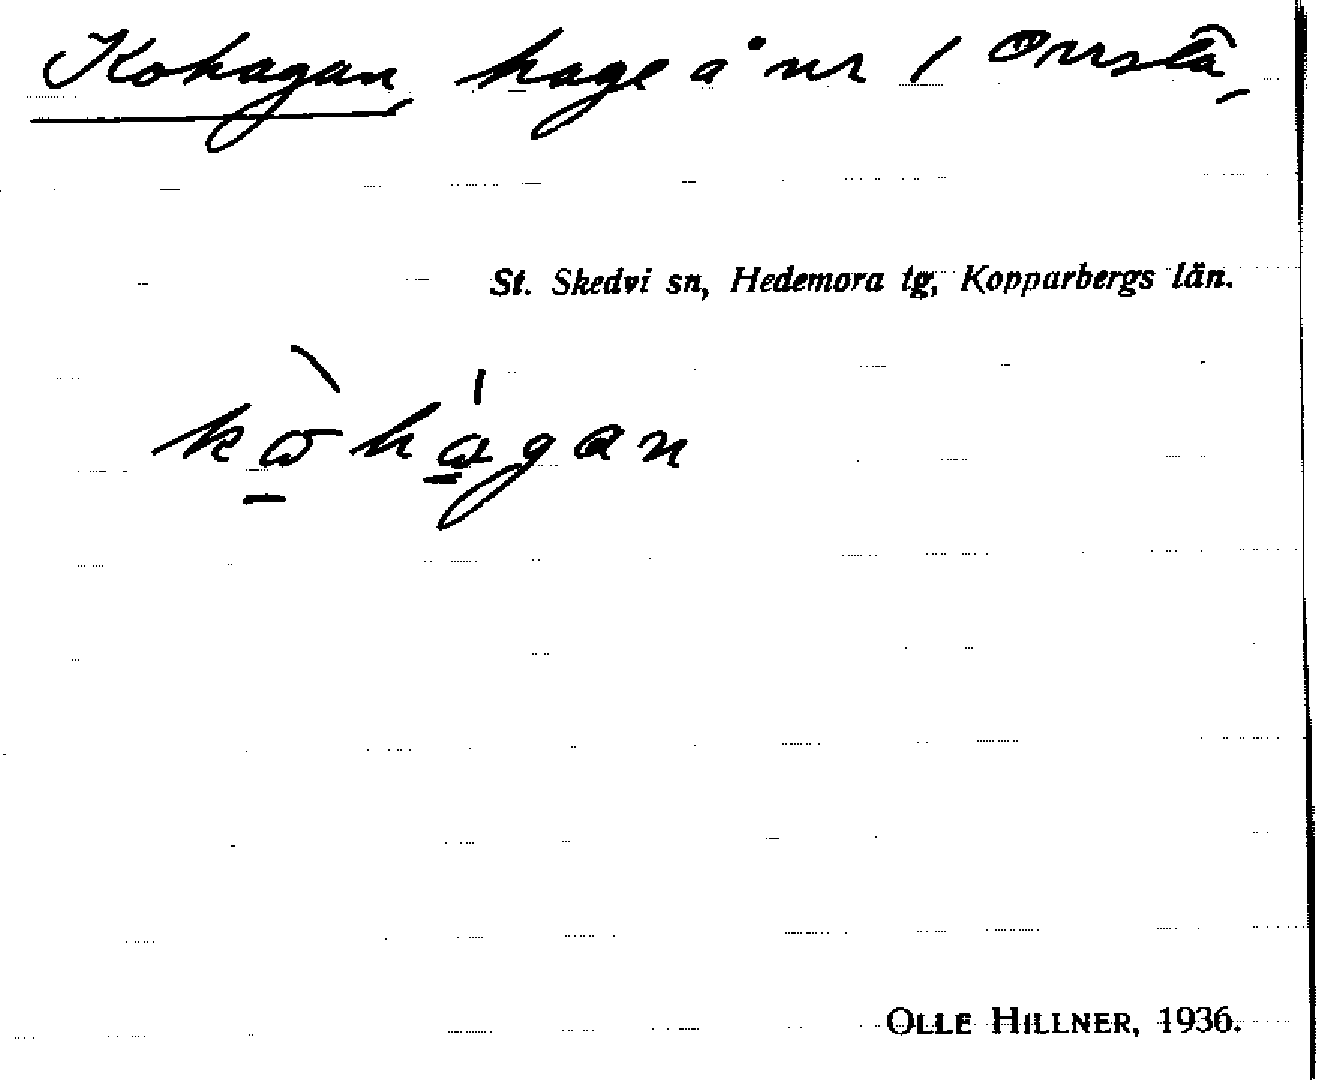 Kohagan, hage å nr 1 Orrsta,
St. Skedvi sn, Hedemora tg, Kopparbergs län.
kòhágan
OLLE HILLNER, 1936.